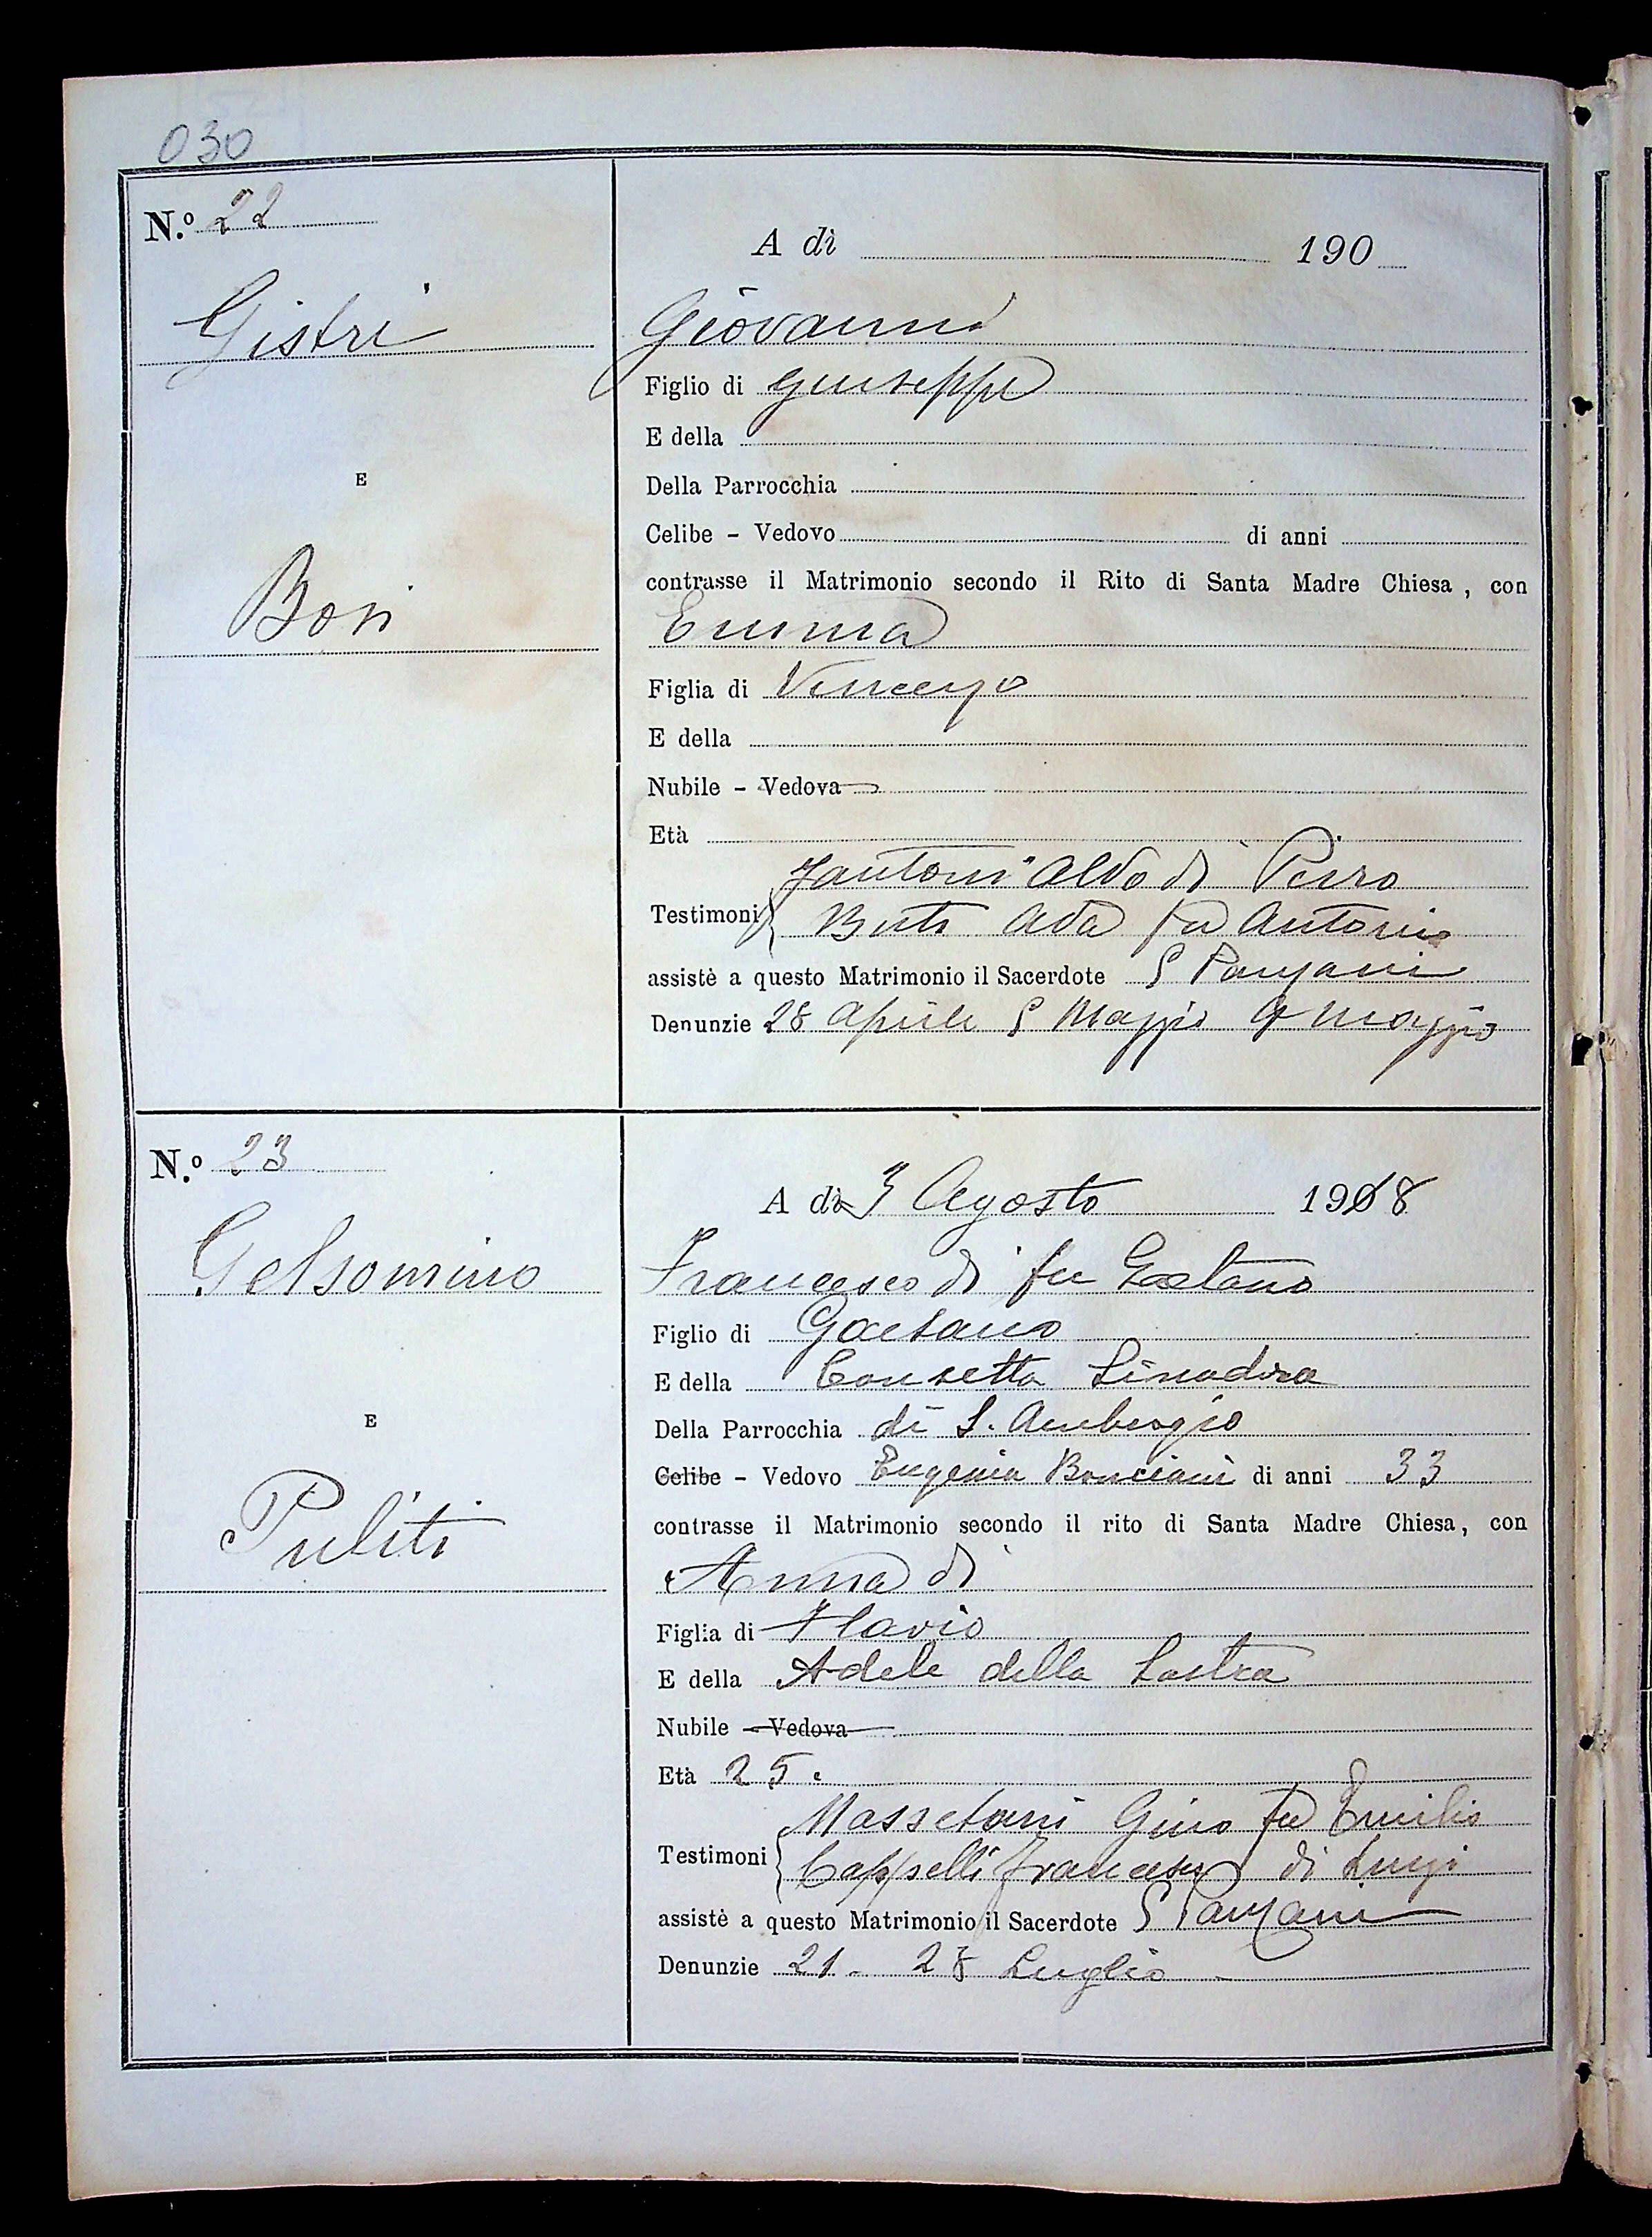 030
N.º 22
A dì 190
Gistri
Giovanni
Figlio di Giuseppe
E della
E
Della Parrocchia
Celibe - Vedovo di anni
contrasse il Matrimonio secondo il Rito di Santa Madre Chiesa, con
Bosi
Emma
Figlia di Vincenzo
E della
Nubile - Vedova
Età
Fantoni Aldo di Pirro
Testimoni Buti Ada fu Antonio
assistè a questo Matrimonio il Sacerdote S Panzani
Denunzie 28 Aprile 5 Maggio 9 Maggio
N.º 23
A dì 3 Agosto 1908
Gelsomino
Francesco di fu Gaetano
Figlio di Gaetano
E della Consetta Sinadra
E
Della Parrocchia di S. Ambrogio
Celibe - Vedovo Eugenia Bonciani di anni 33
contrasse il Matrimonio secondo il rito di Santa Madre Chiesa, con
Puliti
Anna di
Figlia di Flavio
E della Adele della Lastra
Nubile - Vedova
Età 25.
Massetani Gino fu Emilio
Testimoni Cappelli Francesco di Luigi
assistè a questo Matrimonio il Sacerdote S Panzani
Denunzie 21 - 28 Luglio -